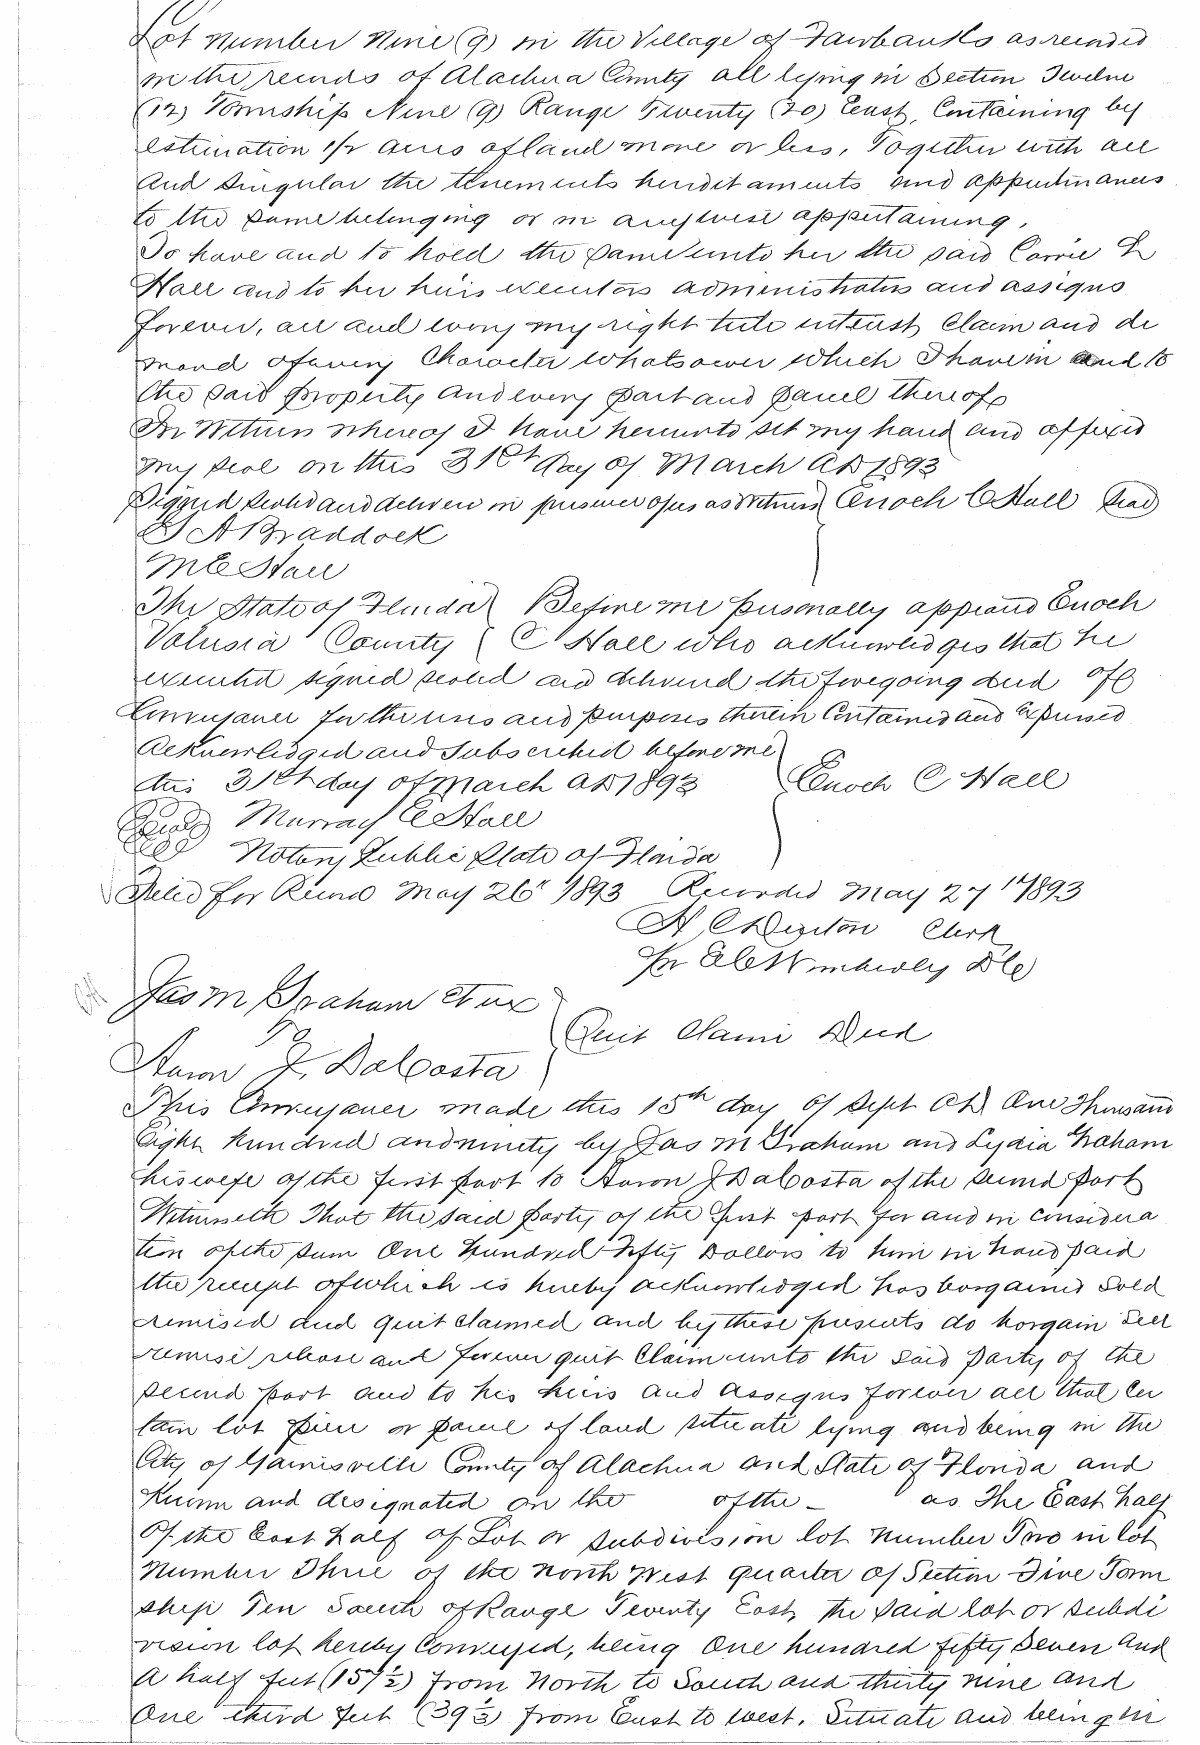 Lot Number Nine (9) in the Village of Fairbanks as recorded
in the records of Alachua County all lying in Section Twelve
(12) Township Nine (9) Range Twenty (20) East, Containing by
estimation 1/2 acres of land more or less, Together with all
and singular the tenements hereditaments and appurtinances
to the same belonging or in anywise appertaining.
To have and to hold the same unto her the said Carrie L
Hall and to her heirs executors administrators and assigns
forever, all and every my right title interest claim and de
mand of every Character whatsoever which I have in and to
the said property and every part and parcel thereof
In Witness Whereof I have hereunto set my hand and affixed
my seal on this 31st day of March AD 1893
Signed sealed and delivered in presence of us as Witness Enoch C Hall Seal
A Braddock
M E Hall
The State of Florida Before me personally appeared Enoch
Volusia County C Hall who acknowledges that he
executed signed sealed and delivered the foregoing deed of
Conveyance for the uses and purposes therein Contained and Expressed
Acknowledged and subscribed before me
this 31st day of March AD 1893 Enoch C Hall
Seal Murray E Hall
Notary Public State of Florida
Filed for Record May 26" 1893 Recorded May 27" 1893
H C Denton Clerk
Pr E C Wimberly DC
Jas M Graham et ux
To Quit Claim Deed
Aaron J. DaCosta
This Conveyance made this 15th day of Sept AD One Thousand
Eight hundred and ninety by Jas M Graham and Lydia Graham
his wife of the first part to Aaron J DaCosta of the second part
Witnesseth That the said party of the first part for and in considera
tion of the sum One hundred Fifty Dollars to him in hand paid
the receipt of which is hereby acknowledged has bargained sold
remised and quit claimed and by these presents do bargain sell
remise release and forever quit claim unto the said party of the
second part and to his heirs and assigns forever all that cer
tain lot piece or parcel of land situate lying and being in the
City of Gainesville County of Alachua and State of Florida and
Known and designated on the of the - as The East half
of the East half of Lot or subdivision lot Number Two in lot
Number Three of the North West quarter of Section Five Town
ship Ten South of Range Twenty East, the said lot or subdi
vision lot hereby Conveyed, being One hundred fifty Seven and
a half feet (157½) from North to South and thirty nine and
One third feet (39⅓) from East to west. Situate and being in